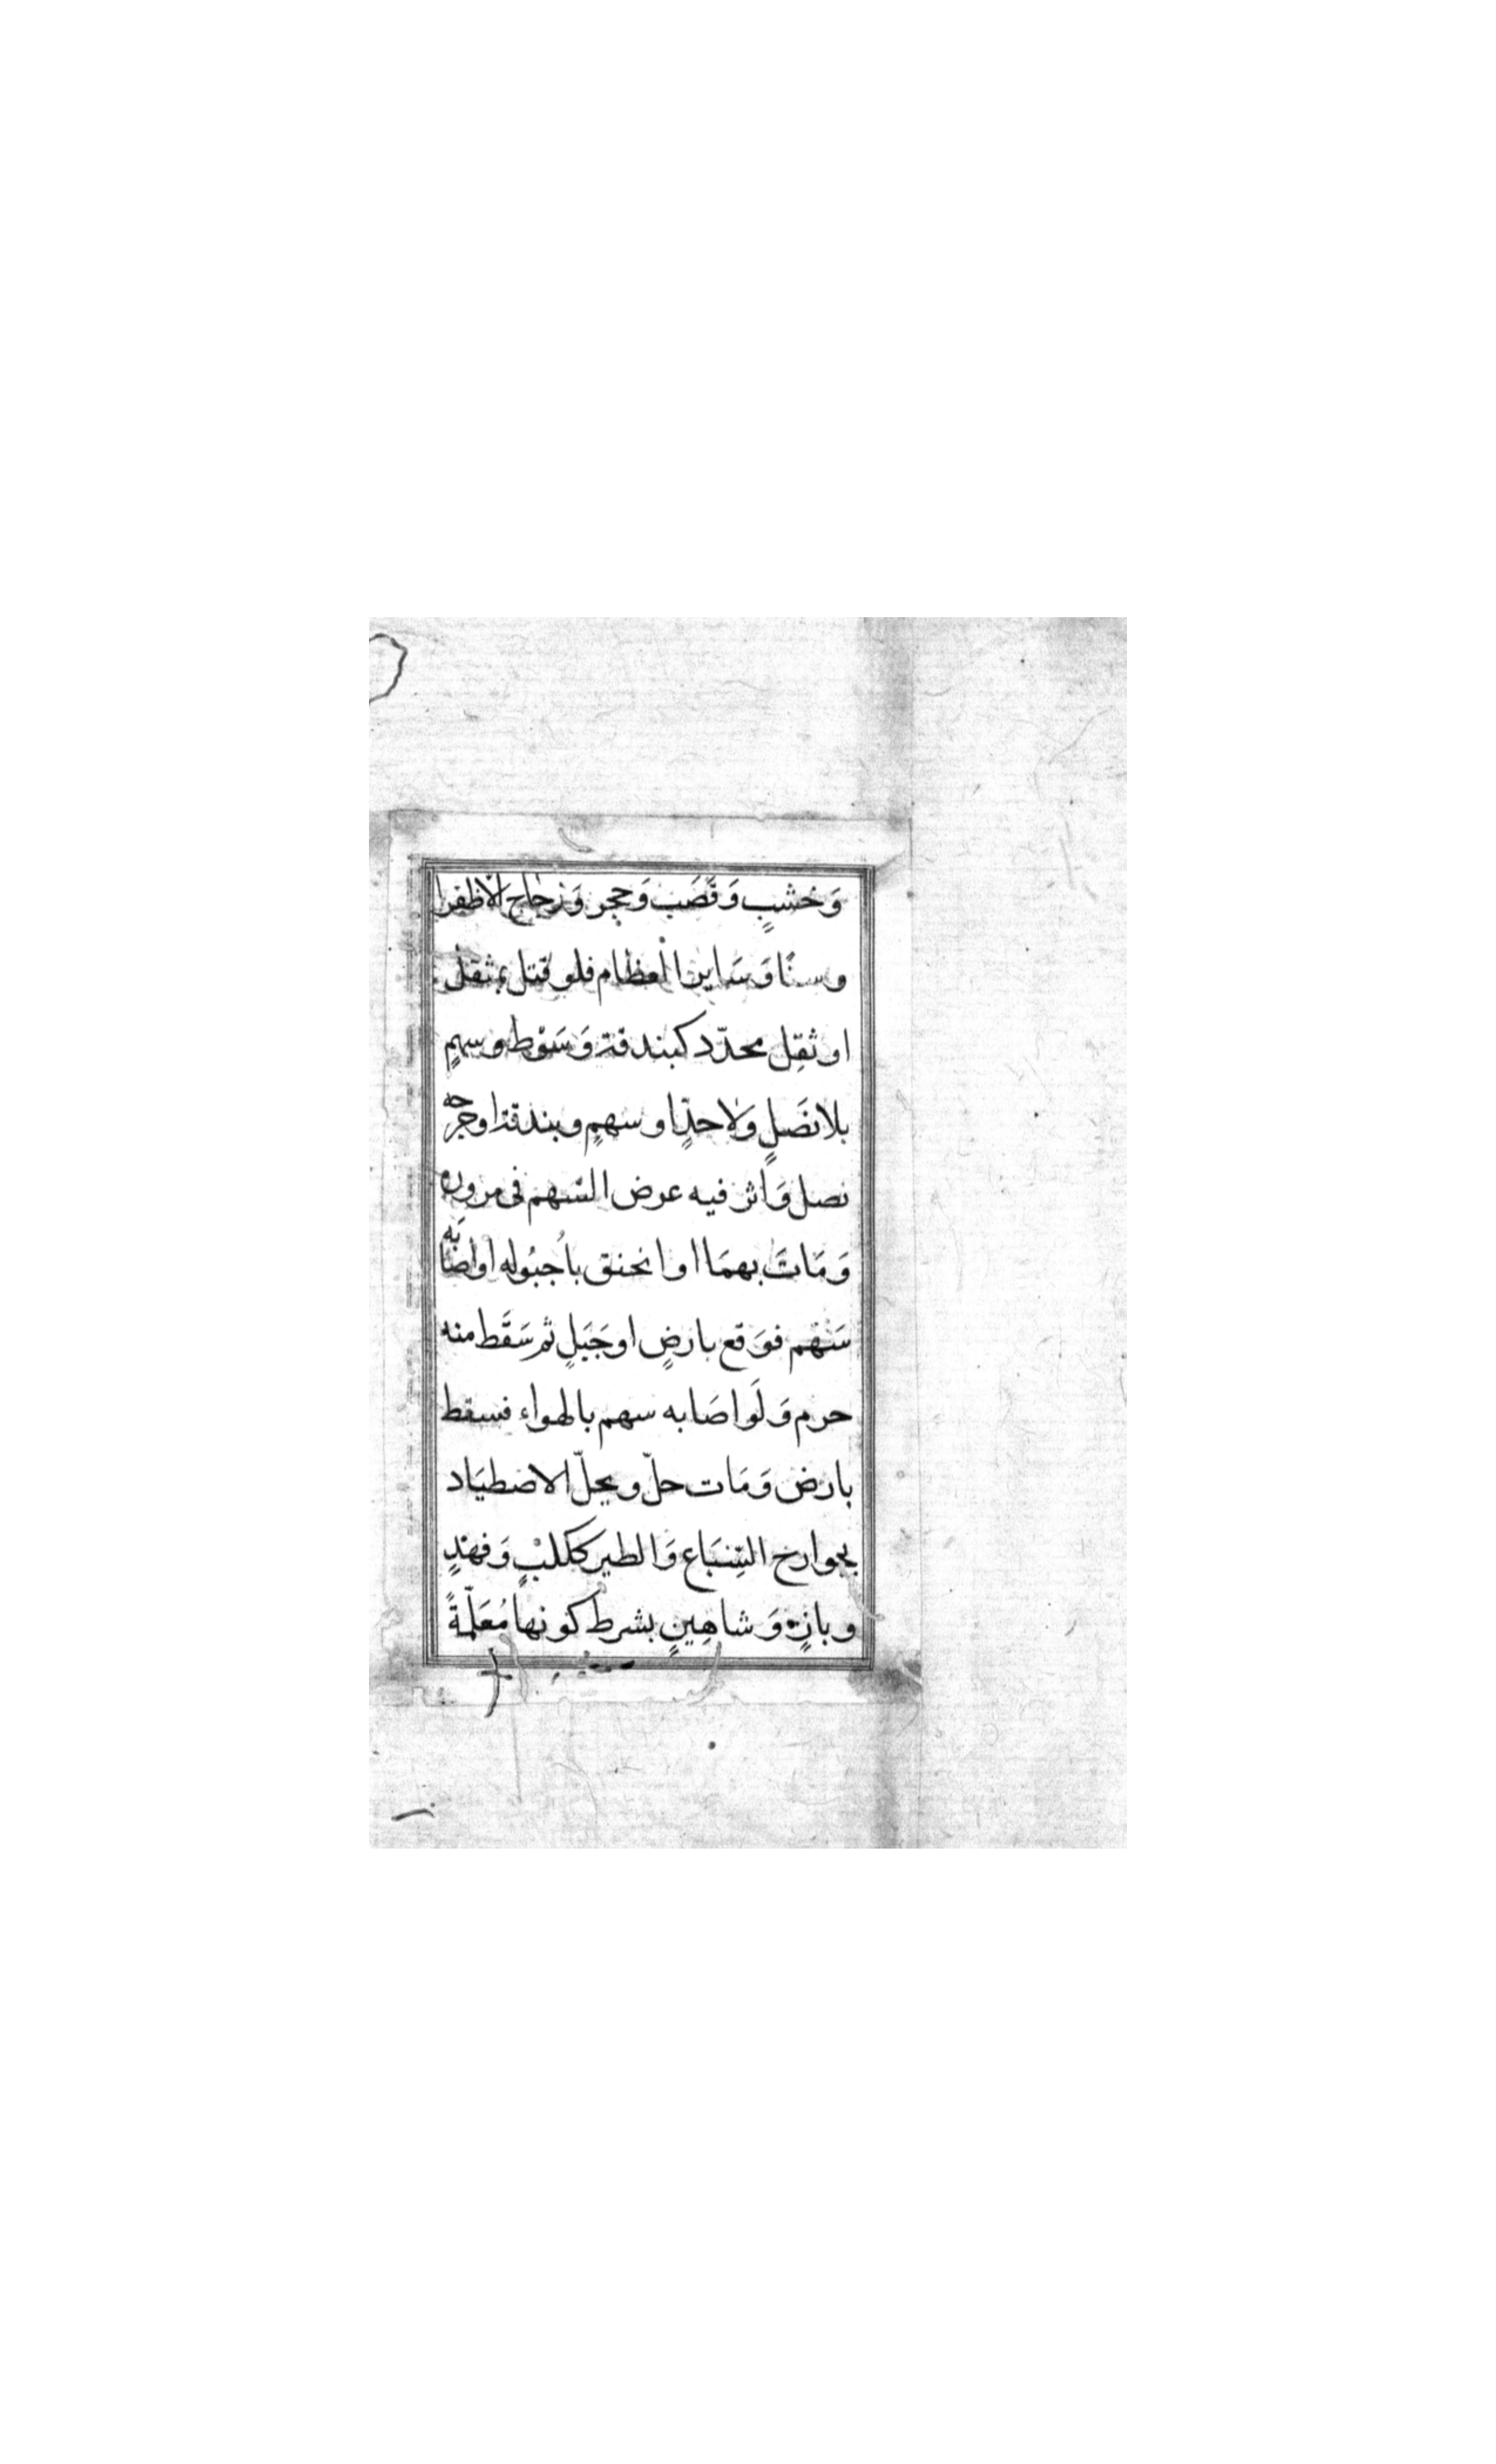 وَخشبٍ وَقَصَب وَحجر وَزجاج الا ظفرا
وسنًا وَسَاير العظام فلو قتل بمثقل
او ثقِل محدّد كبندقة وَسَوْط وسهمٍ
بلا نَصَلٍ وَلا حدٍّ او سهمٍ وبندقة او جرحه
نصل وَاثر فيه عرض السّهم فى مروره
وَمَاتَ بهمَا او انخنق باُحبُوله او اصَابَه
سَهْم فوَقع بارضٍ او جَبَلٍ ثم سَقَط منه
حرم وَلَو اصَابه سهم بالهواء فسقط
بارض وَمَات حلّ ويحلّ الاصطيَاد
بجوارح السِّبَاع وَالطير ككلبٍ وَفهدٍ
وبازٍ وَشاهِينٍ بشرط كونها مُعَلّمةً